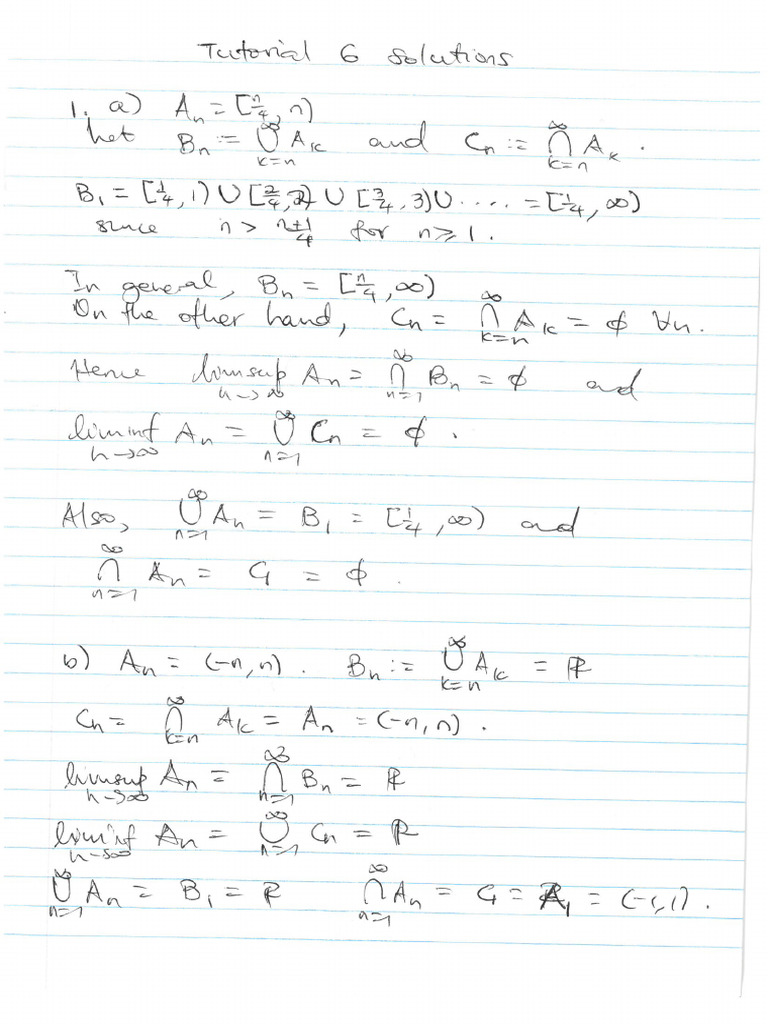 Tutorial 6 solutions
1. a) Aₙ = [n/4, n)
Let Bₙ := ⋃_{k=n}^∞ Aₖ and Cₙ := ⋂_{k=n}^∞ Aₖ.
B₁ = [1/4, 1) ∪ [2/4, 2) ∪ [3/4, 3) ∪ ..... = [1/4, ∞)
since n > (n+1)/4 for n ≥ 1.
In general, Bₙ = [n/4, ∞)
On the other hand, Cₙ = ⋂_{k=n}^∞ Aₖ = ϕ ∀n.
Hence limsup_{n→∞} Aₙ = ⋂_{n=1}^∞ Bₙ = ϕ and
liminf_{n→∞} Aₙ = ⋃_{n=1}^∞ Cₙ = ϕ.
Also, ⋃_{n=1}^∞ Aₙ = B₁ = [1/4, ∞) and
⋂_{n=1}^∞ Aₙ = C₁ = ϕ.
b) Aₙ = (-n, n). Bₙ := ⋃_{k=n}^∞ Aₖ = ℝ
Cₙ = ⋂_{k=n}^∞ Aₖ = Aₙ = (-n, n).
limsup_{n→∞} Aₙ = ⋂_{n=1}^∞ Bₙ = ℝ
liminf_{n→∞} Aₙ = ⋃_{n=1}^∞ Cₙ = ℝ
⋃_{n=1}^∞ Aₙ = B₁ = ℝ ⋂_{n=1}^∞ Aₙ = C₁ = A₁ = (-1, 1).